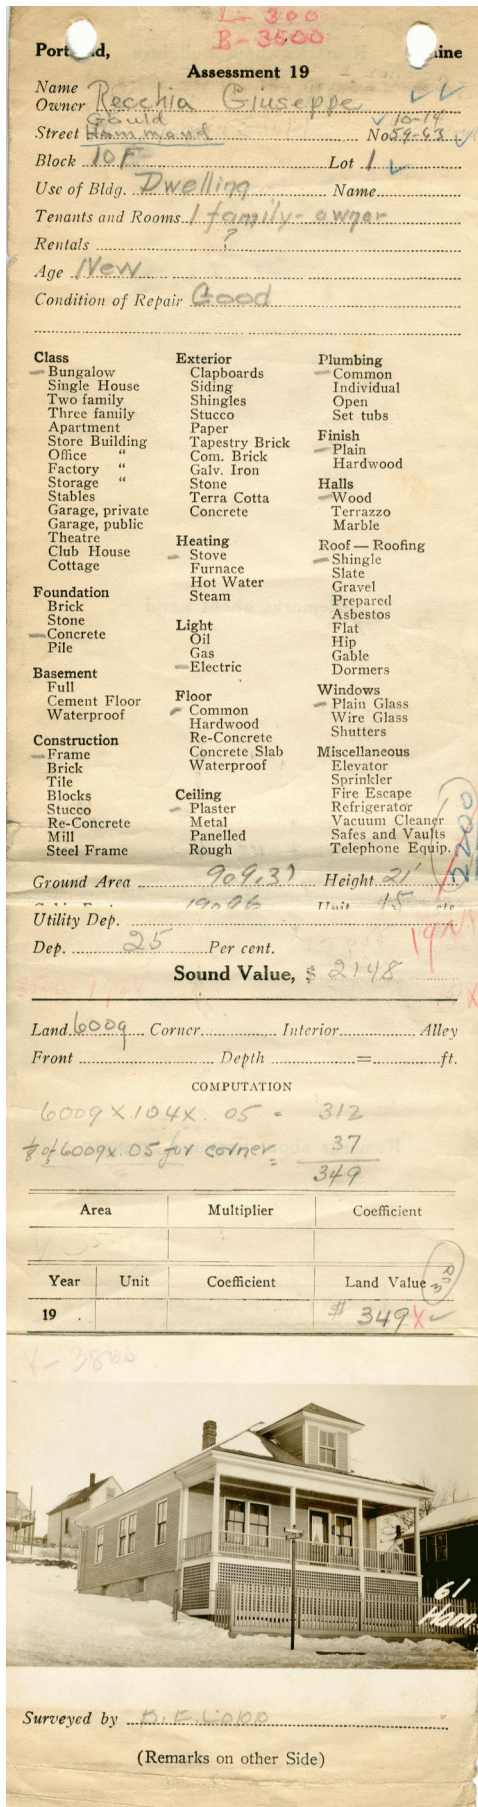 L- 300
B- 3500
Portland, Maine
Assessment 19
Name
Owner Recchia Giuseppe
Gould 10-14
Street Hammond No. 59-63
Block 10F Lot 1
Use of Bldg. Dwelling Name
Tenants and Rooms 1 family- owner
Rentals ?
Age New
Condition of Repair Good
Class
Bungalow
Single House
Two family
Three family
Apartment
Store Building
Office "
Factory "
Storage "
Stables
Garage, private
Garage, public
Theatre
Club House
Cottage
Foundation
Brick
Stone
Concrete
Pile
Basement
Full
Cement Floor
Waterproof
Construction
Frame
Brick
Tile
Blocks
Stucco
Re-Concrete
Mill
Steel Frame
Exterior
Clapboards
Siding
Shingles
Stucco
Paper
Tapestry Brick
Com. Brick
Galv. Iron
Stone
Terra Cotta
Concrete
Heating
Stove
Furnace
Hot Water
Steam
Light
Oil
Gas
Electric
Floor
Common
Hardwood
Re-Concrete
Concrete Slab
Waterproof
Ceiling
Plaster
Metal
Panelled
Rough
Plumbing
Common
Individual
Open
Set tubs
Finish
Plain
Hardwood
Halls
Wood
Terrazzo
Marble
Roof — Roofing
Shingle
Slate
Gravel
Prepared
Asbestos
Flat
Hip
Gable
Dormers
Windows
Plain Glass
Wire Glass
Shutters
Miscellaneous
Elevator
Sprinkler
Fire Escape
Refrigerator
Vacuum Cleaner
Safes and Vaults
Telephone Equip.
2200
Ground Area 909.37 Height 21'
Unit 15 cts
Utility Dep.
Dep. 25 Per cent.
Sound Value, $ 2148
Land 6009 Corner Interior Alley
Front Depth = ft.
COMPUTATION
6009 X 104 X .05 = 312
1/8 of 6009 X .05 for corner = 37
349
Area Multiplier Coefficient
Year Unit Coefficient Land Value
19 . $ 349 X
V- 3800
61
Ham
Surveyed by
(Remarks on other Side)